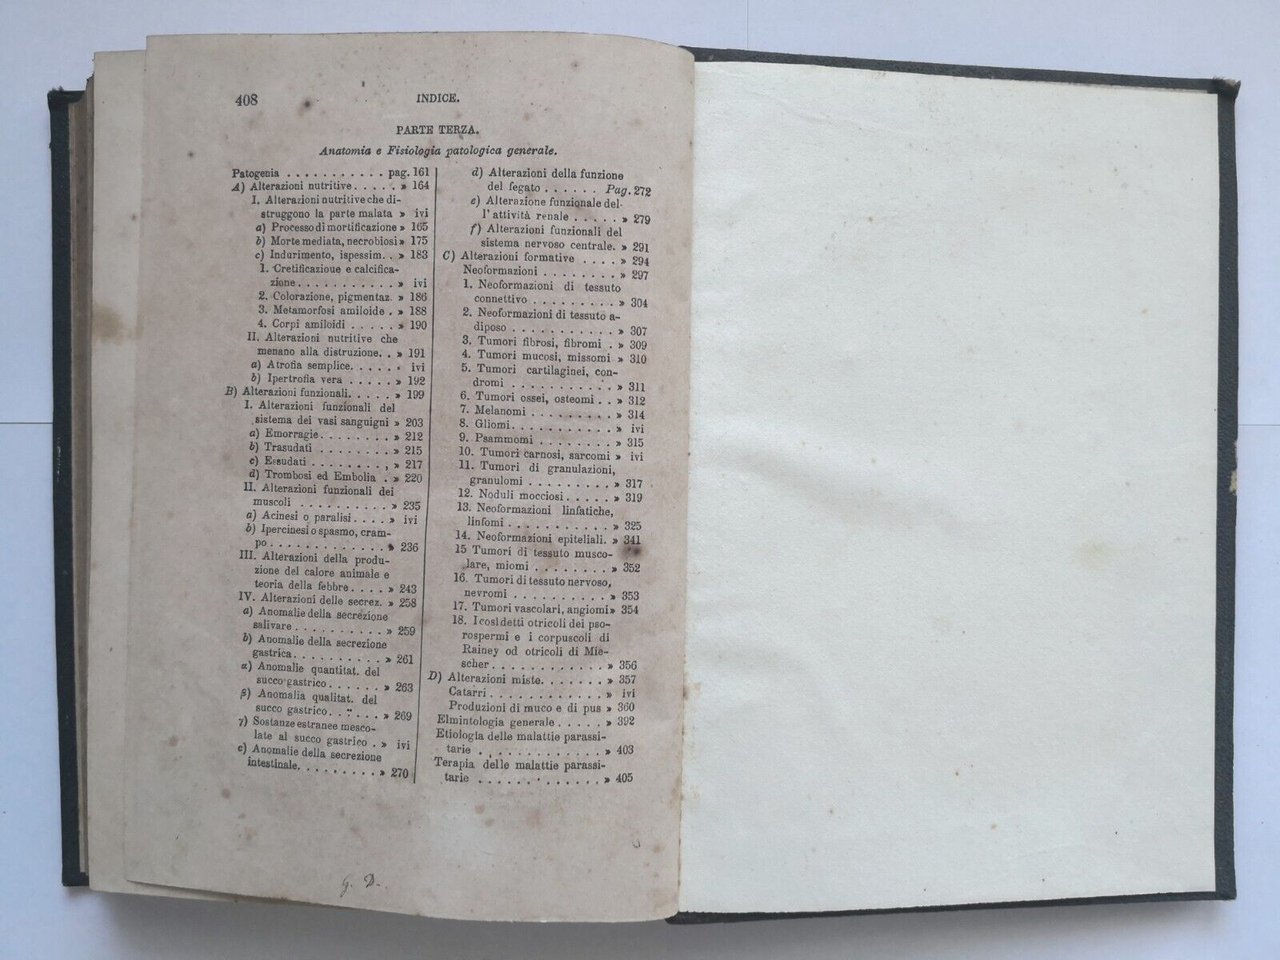 408
INDICE.
PARTE TERZA.
Anatomia e Fisiologia patologica generale.
Patogenia . . . . . . . . . . . pag. 161
A) Alterazioni nutritive . . . . . » 164
I. Alterazioni nutritive che di-
struggono la parte malata » ivi
a) Processo di mortificazione » 165
b) Morte mediata, necrobiosi » 175
c) Indurimento, ispessim. . » 183
1. Cretificazioue e calcifica-
zione . . . . . . . . . . . » ivi
2. Colorazione, pigmentaz. » 186
3. Metamorfosi amiloide . » 188
4. Corpi amiloidi . . . . . » 190
II. Alterazioni nutritive che
menano alla distruzione. . » 191
a) Atrofia semplice. . . . . . ivi
b) Ipertrofia vera . . . . . » 192
B) Alterazioni funzionali. . . . . » 199
I. Alterazioni funzionali del
sistema dei vasi sanguigni » 203
a) Emorragie . . . . . . . . » 212
b) Trasudati . . . . . . . . » 215
c) Essudati . . . . . . . . , » 217
d) Trombosi ed Embolia . » 220
II. Alterazioni funzionali dei
muscoli . . . . . . . . . . » 235
a) Acinesi o paralisi . . . . » ivi
b) Ipercinesi o spasmo, cram-
po . . . . . . . . . . . . . » 236
III. Alterazioni della produ-
zione del calore animale e
teoria della febbre . . . . » 243
IV. Alterazioni delle secrez. » 258
a) Anomalie della secrezione
salivare . . . . . . . . . . » 259
b) Anomalie della secrezione
gastrica . . . . . . . . . . » 261
α) Anomalie quantitat. del
succo gastrico . . . . . . » 263
β) Anomalia qualitat. del
succo gastrico . . . . . . » 269
γ) Sostanze estranee mesco-
late al succo gastrico . » ivi
c) Anomalie della secrezione
intestinale. . . . . . . . . » 270
d) Alterazioni della funzione
del fegato . . . . . . Pag. 272
e) Alterazione funzionale del-
l' attività renale . . . . . » 279
f) Alterazioni funzionali del
sistema nervoso centrale. » 291
C) Alterazioni formative . . . . » 294
Neoformazioni . . . . . . . . » 297
1. Neoformazioni di tessuto
connettivo . . . . . . . . . » 304
2. Neoformazioni di tessuto a-
diposo . . . . . . . . . . . » 307
3. Tumori fibrosi, fibromi . » 309
4. Tumori mucosi, missomi » 310
5. Tumori cartilaginei, con-
dromi . . . . . . . . . . . » 311
6. Tumori ossei, osteomi . . » 312
7. Melanomi . . . . . . . . . » 314
8. Gliomi . . . . . . . . . . . » ivi
9. Psammomi . . . . . . . . » 315
10. Tumori carnosi, sarcomi » ivi
11. Tumori di granulazioni,
granulomi . . . . . . . . . » 317
12. Noduli mocciosi . . . . . » 319
13. Neoformazioni linfatiche,
linfomi . . . . . . . . . . . » 325
14. Neoformazioni epiteliali. » 341
15 Tumori di tessuto musco-
lare, miomi . . . . . . . . » 352
16. Tumori di tessuto nervoso,
nevromi . . . . . . . . . . » 353
17. Tumori vascolari, angiomi » 354
18. I cosi detti otricoli dei pso-
rospermi e i corpuscoli di
Rainey od otricoli di Mie-
scher . . . . . . . . . . . . » 356
D) Alterazioni miste. . . . . . . » 357
Catarri . . . . . . . . . . . . » ivi
Produzioni di muco e di pus » 360
Elmintologia generale . . . . . » 392
Etiologia delle malattie parassi-
tarie . . . . . . . . . . . . . » 403
Terapia delle malattie parassi-
tarie . . . . . . . . . . . . . » 405
G. D.